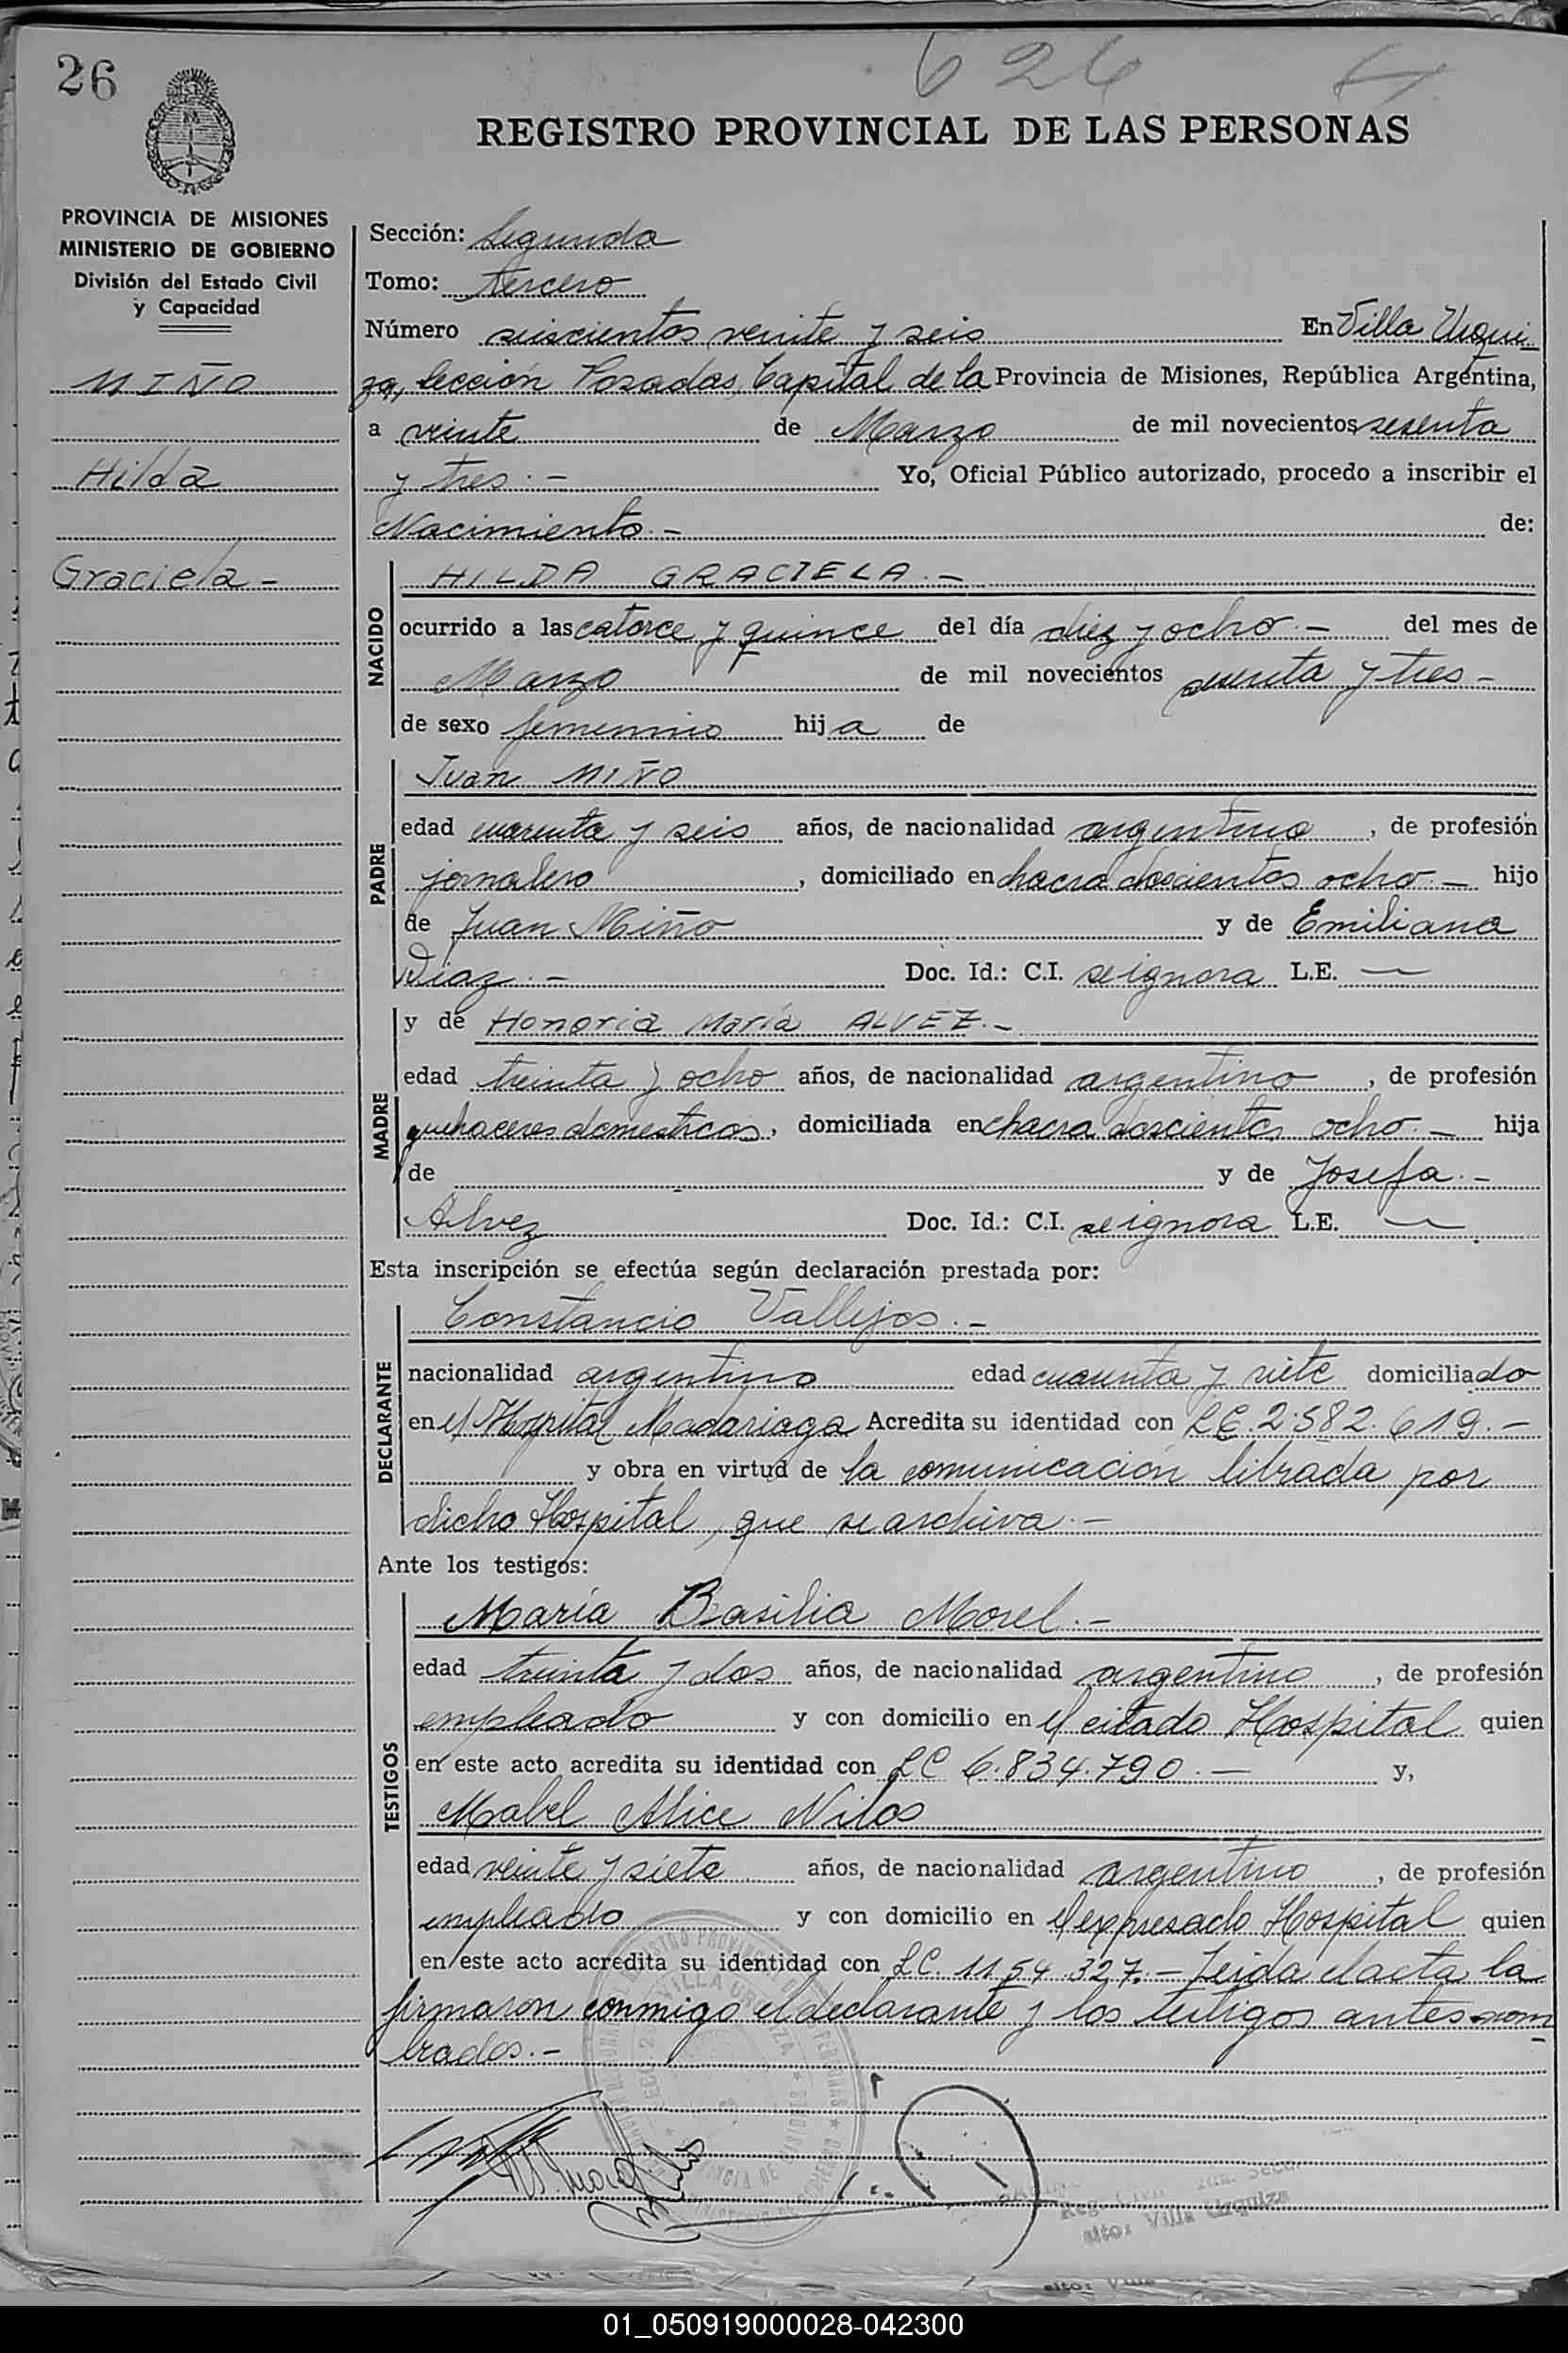 26
626
REGISTRO PROVINCIAL DE LAS PERSONAS
PROVINCIA DE MISIONES
MINISTERIO DE GOBIERNO
División del Estado Civil
y Capacidad
MIÑO
Hilda
Graciela -
Sección: Segunda
Tomo: tercero
Número seiscientos veinte y seis En Villa Urqui
za, Sección Posadas, Capital de la Provincia de Misiones, República Argentina,
a veinte de Marzo de mil novecientos sesenta
y tres.- Yo, Oficial Público autorizado, procedo a inscribir el
Nacimiento.- de:
NACIDO
HILDA GRACIELA.-
ocurrido a las catorce y quince del día diez y ocho.- del mes de
Marzo de mil novecientos sesenta y tres -
de sexo femenino hija de
PADRE
Juan MIÑO
edad cuarenta y seis años, de nacionalidad argentino, de profesión
jornalero, domiciliado en chacra doscientos ocho.- hijo
de Juan Miño y de Emiliana
Diaz.- Doc. Id.: C.I. se ignora L.E. —
MADRE
y de Honoria María ALVEZ.-
edad treinta y ocho años, de nacionalidad argentino, de profesión
quehaceres domesticos, domiciliada en chacra doscientos ocho.- hija
de y de Josefa.-
Alvez Doc. Id.: C.I. se ignora L.E. —
Esta inscripción se efectúa según declaración prestada por:
DECLARANTE
Constancio Vallejos.-
nacionalidad argentino edad cuarenta y siete domiciliado
en el Hospital Madariaga Acredita su identidad con L.E. 2.582.619.-
y obra en virtud de la comunicación librada por
dicho Hospital, que se archiva.-
Ante los testigos:
TESTIGOS
María Basilia Morel.-
edad treinta y dos años, de nacionalidad argentino, de profesión
empleado y con domicilio en el citado Hospital quien
en este acto acredita su identidad con LC 6.834.790.- y,
Mabel Alice Nilos
edad veinte y siete años, de nacionalidad argentino, de profesión
empleado y con domicilio en el expresado Hospital quien
en este acto acredita su identidad con LC. 1154.327.- Leida el acta la
firmaron conmigo el declarante y los testigos antes nom
brados.-
Villa Urquiza
01_050919000028-042300